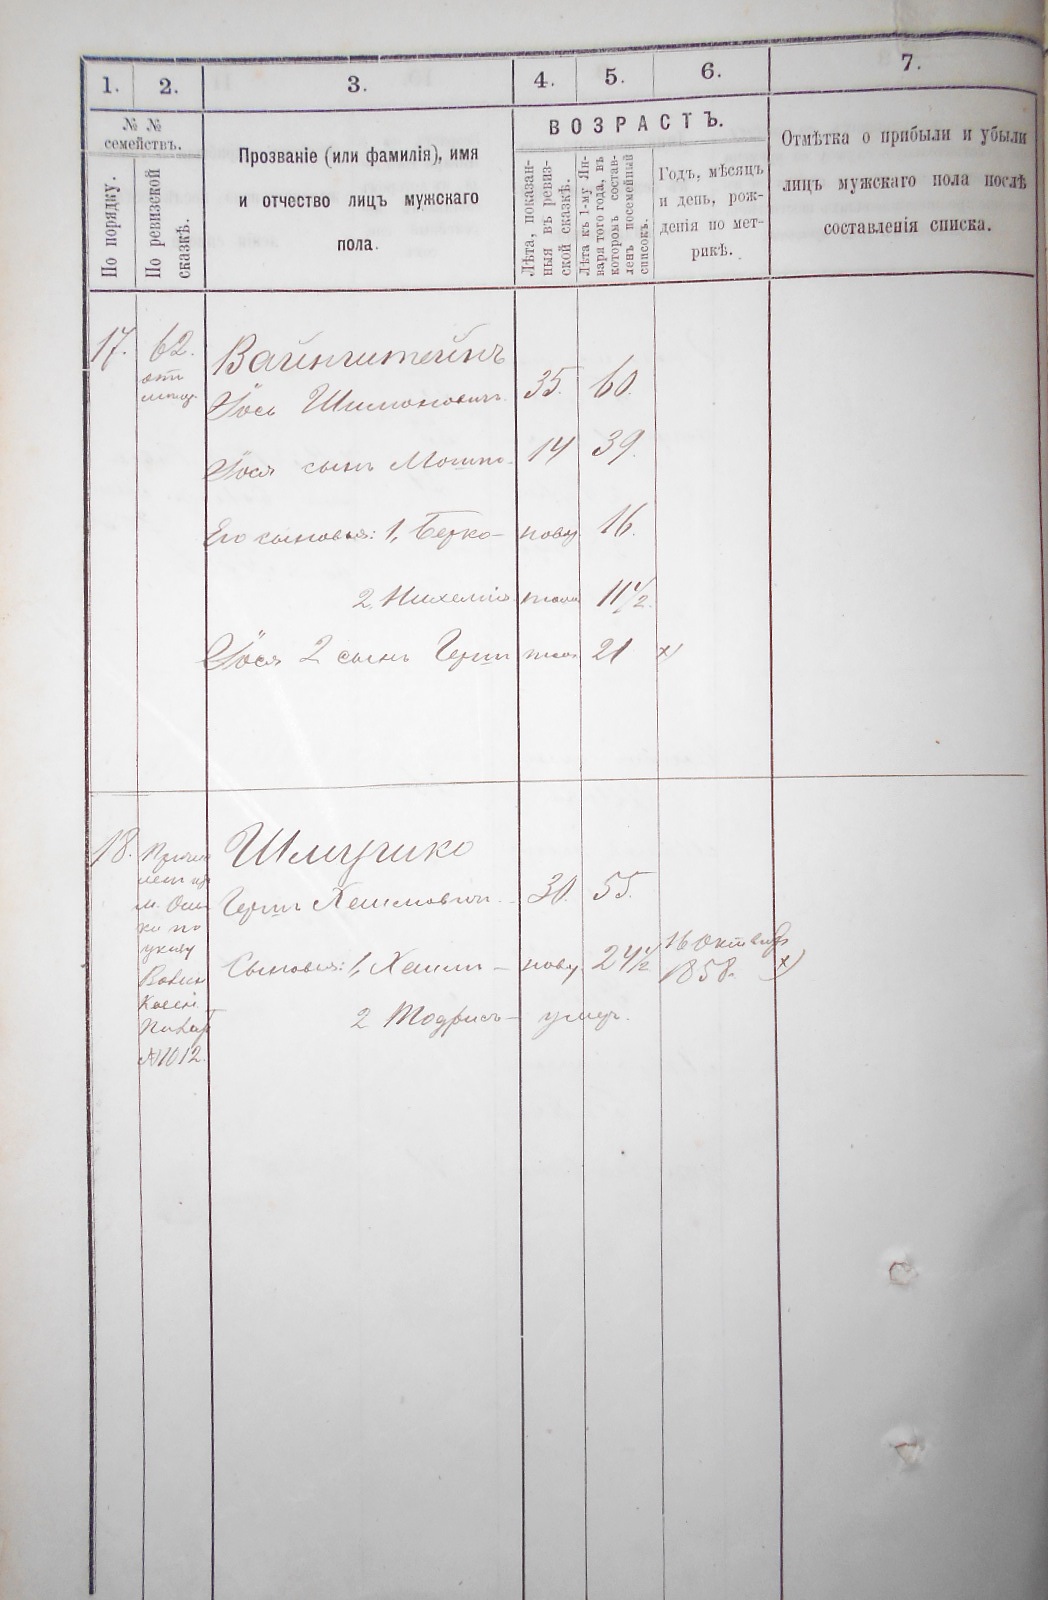 1. 2. 3. 4. 5. 6. 7.
№ №
семействъ.
По порядку.
По ревизской
сказкѣ.
Прозваніе (или фамилія), имя
и отчество лицъ мужскаго
пола.
ВОЗРАСТЪ.
Лѣта, показан-
ныя въ ревиз-
ской сказкѣ.
Лѣта къ 1-му Ян-
варя того года, въ
которомъ состав-
ленъ посемейный
списокъ.
Годъ, мѣсяцъ
и день, рож-
денія по мет-
рикѣ.
Отмѣтка о прибыли и убыли
лицъ мужскаго пола послѣ
составленія списка.
17. 62. Вайнштейнъ
Іось Шимоновичъ. 35. 60.
Іося сынъ Мошко 14 39.
Его сыновья: 1, Берко - нову 16.
2, 11 1/2.
Іося 2 сынъ Герш 21 х)
18. Шмушко
Гершъ Хаимовичъ 30. 55.
Сыновья: 1, Хаимъ - нову 24 1/2 16 Октября
1858. х)
2 Тодрисъ - умер.
м.
по
указу
№ 1012.